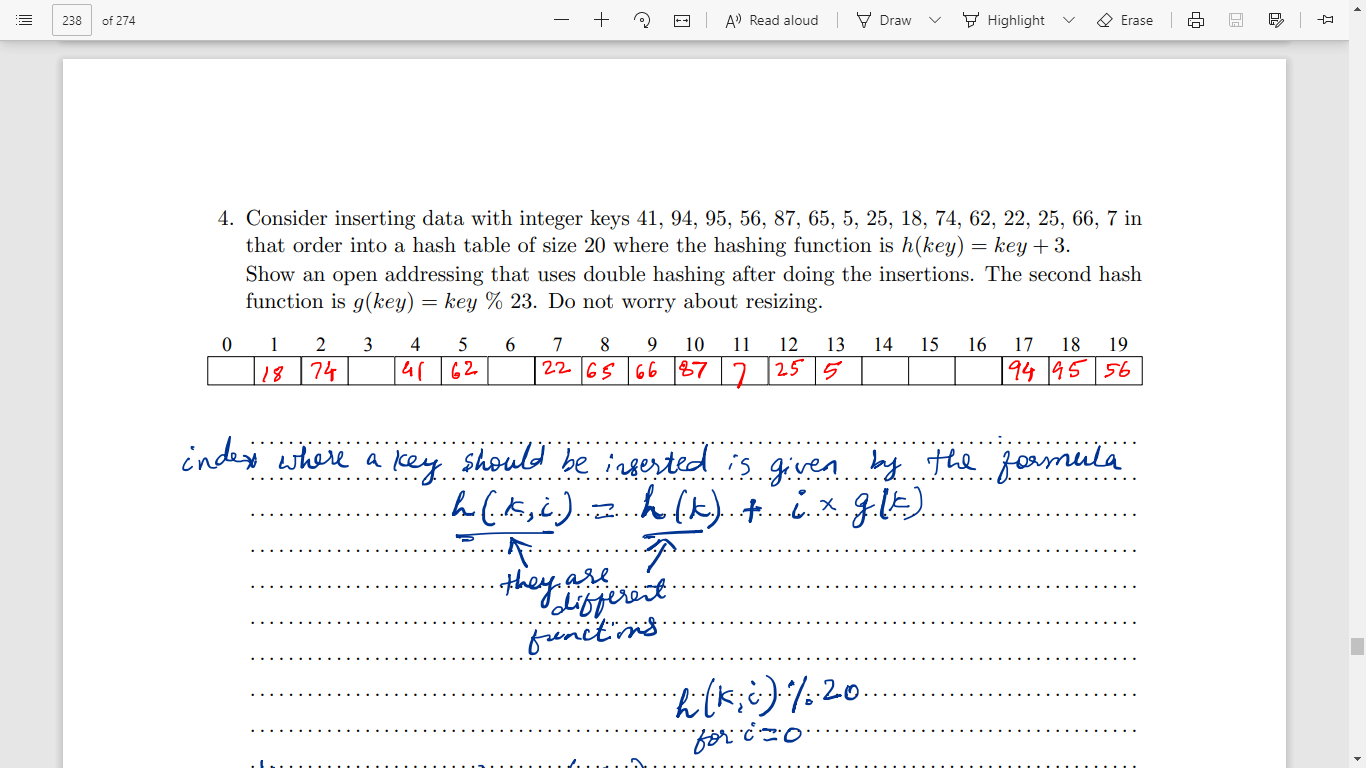 238 of 274 Read aloud Draw Highlight Erase
4. Consider inserting data with integer keys 41, 94, 95, 56, 87, 65, 5, 25, 18, 74, 62, 22, 25, 66, 7 in
that order into a hash table of size 20 where the hashing function is h(key) = key + 3.
Show an open addressing that uses double hashing after doing the insertions. The second hash
function is g(key) = key % 23. Do not worry about resizing.
0 1 2 3 4 5 6 7 8 9 10 11 12 13 14 15 16 17 18 19
18 74 41 62 22 65 66 87 7 25 5 94 95 56
index where a key should be inserted is given by the formula
h(k,i) = h(k) + i × g(k)
they are
different
functions
h(k,i) % 20
for i=0